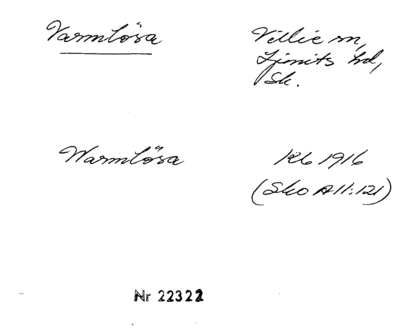 Varmlösa
Villie sn,
Ljunits hd,
Sk.
Warmlösa
Kb 1916
(Sko A II:121)
Nr 22322